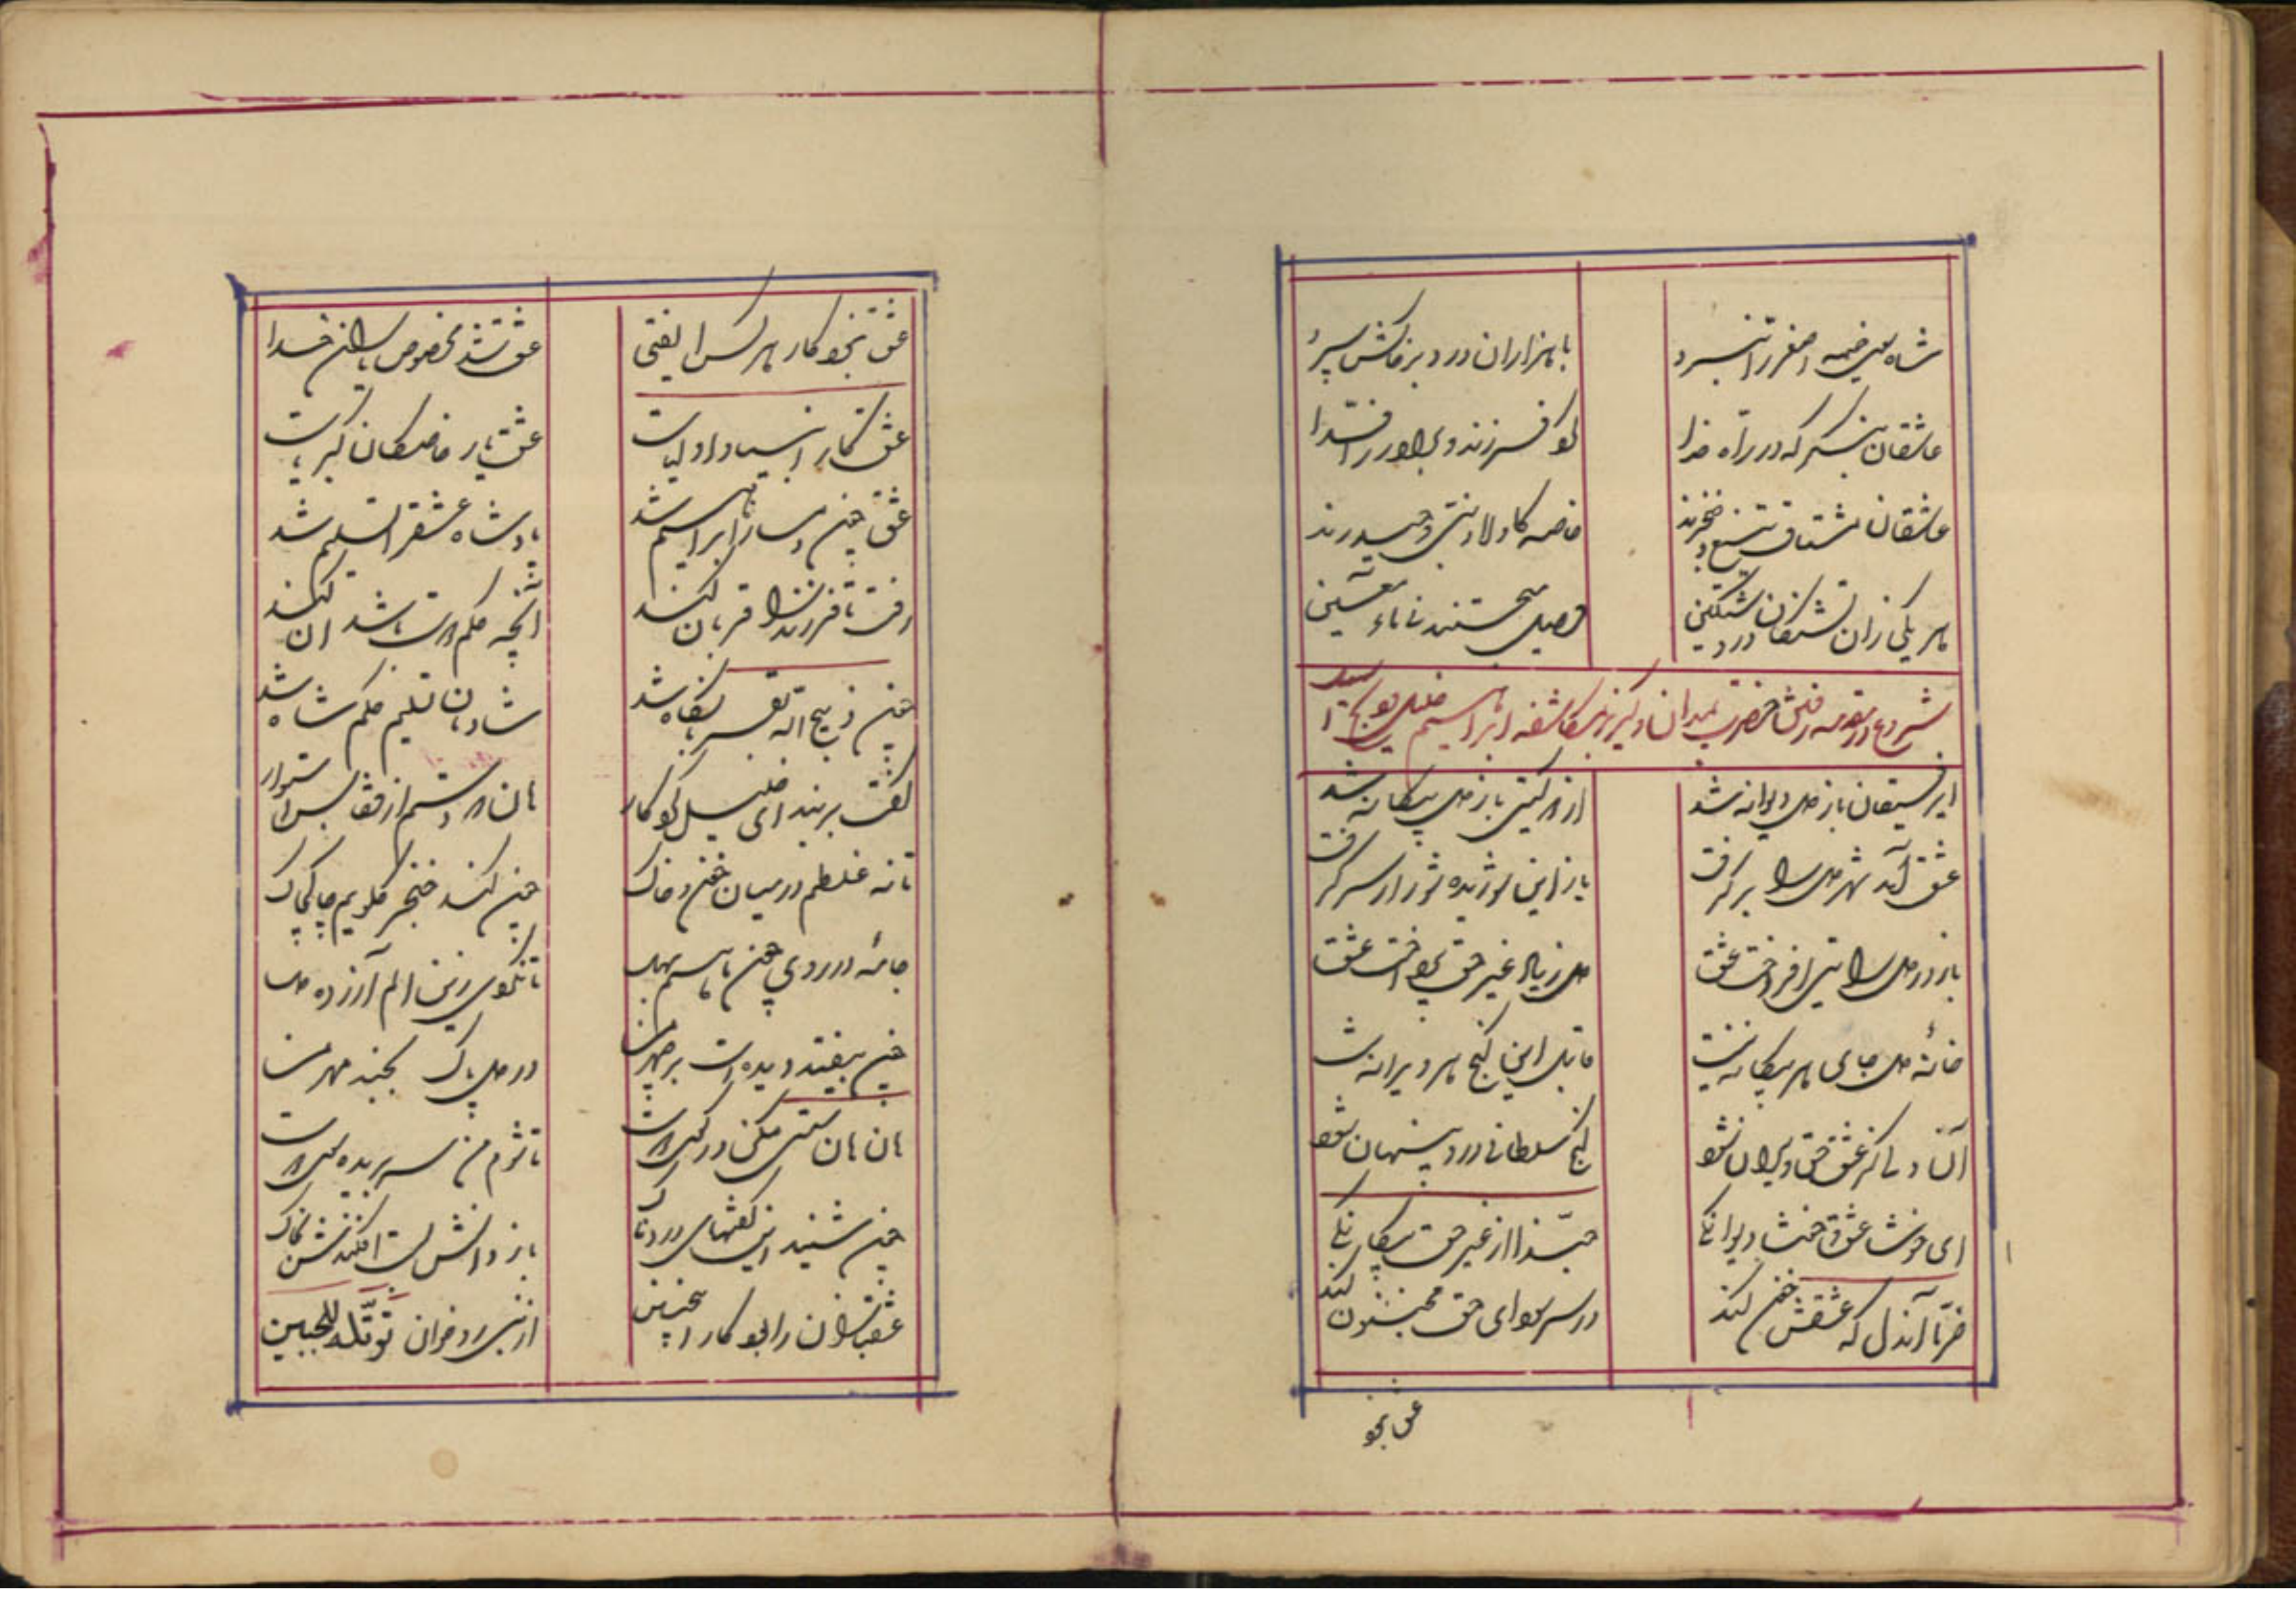 شاه سوی خیمه اصغر را نبرد
با هزاران درد بر خاکش سپرد
عاشقان بنگر که در راه خدا
کو فرزند و برادر را فدا
عاشقان مشتاق تیغ و خنجرند
خاصه کاولاد نبی و حیدرند
هر یکی زان تشنگان
وصل می‌جستند تا
شروع در مقدمه رفتن حضرت بمیدان و گریز بمکاشفه ابراهیم خلیل
ای رفیقان باز دل دیوانه شد
از همه گیتی باز دل بیگانه شد
عشق آمد شهر دل را بر گرفت
باز این شوریده شور از سر گرفت
باز در دل آتشی افروخت عشق
دل ز یاد غیر حق پرداخت عشق
خانهٔ دل جای هر بیگانه نیست
قابل این گنج هر ویرانه نیست
آن دلی کز عشق حق ویران شود
گنج سلطانی در او پنهان شود
ای خوشا عشق و خوشا دیوانگی
حبّذا از غیر حق بیگانگی
خرّما آندل که عشقش خون کند
در سر سودای حق مجنون کند
عشق نبود
عشق نبود کار هر کس ای فتی
عشق شد مخصوص پاسان خدا
عشق کار انبیا و اولیاست
عشق یار خاصگان کبریاست
عشق چون دمساز ابراهیم شد
پادشاه عشق را تسلیم شد
رفت تا فرزند را قربان کند
آنچه حکم دوست باشد آن کند
چون ذبیح الله بقربانگاه شد
شادمان تسلیم حکم شاه شد
گفت بر بند ای خلیل کوکار
هان دو دستم از قفا بس استوار
تا نه غلطم در میان خون و خاک
چون کند خنجر گلویم چاک چاک
جامه در روی چون ماهم بهل
تا نگوی زین الم آزرده دل
چون بیفتد دیده‌ات بر چهر من
در دل پاکت بجنبد مهر من
هان هان سستی مکن در کوی دوست
تا شوم من سر بریده سوی دوست
چون شنید این گفتهای دردناک
باز دانش بست افکندش بخاک
عشقبازان را بود کار اینچنین
از نبی رو خوان وتلّه للجبین